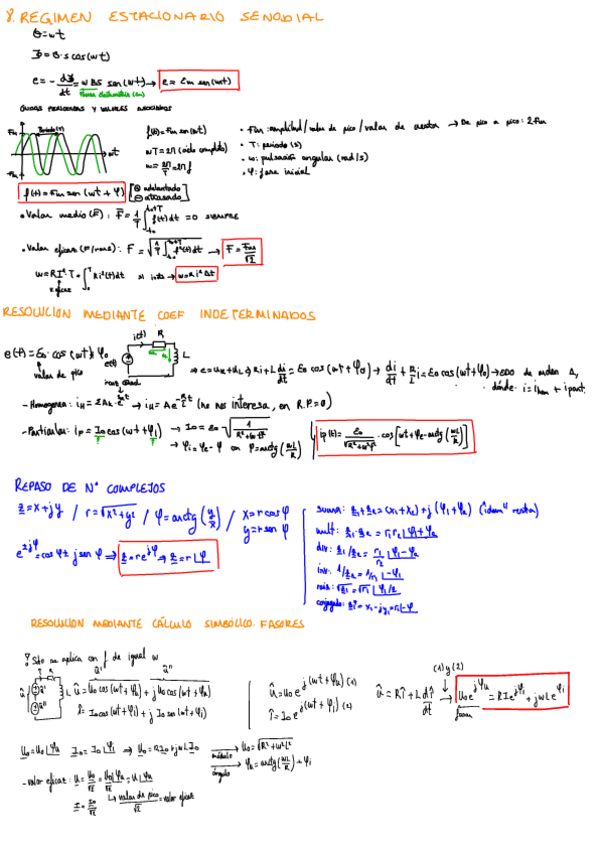 8. REGIMEN ESTACIONARIO SENOIDAL
θ=wt
Φ=B·s cos(wt)
e = - dΦ/dt = wBS sen(wt) → e = Em sen(wt)
ONDAS PERIODICAS Y VALORES ASOCIADOS
Periodo(T)
f(t)=Fm sen(wt)
wT=2π (ciclo completo)
w=2π/T=2πf
• Fm: amplitud/valor de pico/valor de cresta → De pico a pico: 2Fm
• T: periodo (s)
• w: pulsación angular (rad/s)
• φ: fase inicial
f(t)=Fm sen(wt+φ) [⊕ adelantado ⊖ atrasado]
• Valor medio (F̄): F̄ = 1/T ∫ f(t)dt = 0 SIEMPRE
• Valor eficaz (F/rms): F = √(1/T ∫ f²(t)dt) → F = Fm/√2
w=RI²·T=∫Ri²(t)dt
RESOLUCION MEDIANTE COEF INDETERMINADOS
e(t)=E₀·cos(wt+φ₀)
valor de pico
i(t) R
e(t)
L
⇒ e=u_R+u_L ⇒ Ri+L di/dt = E₀ cos(wt+φ₀) → di/dt + R/L i = E₀cos(wt+φ₀) → EDO de orden 1,
dónde: i=i hom + i part.
- Homogenea:
→ i_H = Ae^(-R/L t) (no nos interesa, en R.P.=0)
- Particular: i_P = I₀cos(wt+φ_i) → I₀=E₀
→ φ_i=φ_e-φ con φ=arctg(wL/R)
i_P(t)= E₀/√(R²+w²L²) · cos[wt+φ_e-arctg(wL/R)]
REPASO DE Nº COMPLEJOS
z=x+jy / r=√(x²+y²) / φ=arctg(y/x) / x=r cosφ
y=r sen φ
e^(±jφ)=cos φ ± j sen φ ⇒ z=re^(jφ) ⇒ z=r∠φ
suma: z₁+z₂=(x₁+x₂)+j(φ₁+φ₂)
mult: z₁·z₂=r₁r₂∠φ₁+φ₂
div: z₁/z₂=r₁/r₂∠φ₁-φ₂
inv: 1/z₁=1/r₁∠-φ₁
raiz: √z₁=√r₁∠φ₁/2
conjugado: z₁*=x₁-jy₁=r₁∠-φ
RESOLUCION MEDIANTE CÁLCULO SIMBÓLICO. FASORES
Sólo se aplica con f de igual w
L
û=U₀cos(wt+φ_u)+jU₀cos(wt+φ_u)
î=I₀cos(wt+φ_i)+jI₀sen(wt+φ_i)
û=U₀e^(j(wt+φ_u)) (1)
î=I₀e^(j(wt+φ_i)) (2)
û=Rî+L dî/dt
(1) y (2)
→ U₀e^(jφ_u)=RIe^(jφ_i)+jwLe^(φ_i)
fasor
U₀=U₀∠φ_u I₀=I₀∠φ_i ⇒ U₀=RI₀+jwLI₀
módulo → U₀=√(R²+w²L²)
ángulo → φ_u=arctg(wL/R)+φ_i
- valor eficaz: U=U₀/√2=U₀/√2∠φ_u=U∠φ_u
I=I₀/√2 ↳ valor de pico/√2=valor eficaz